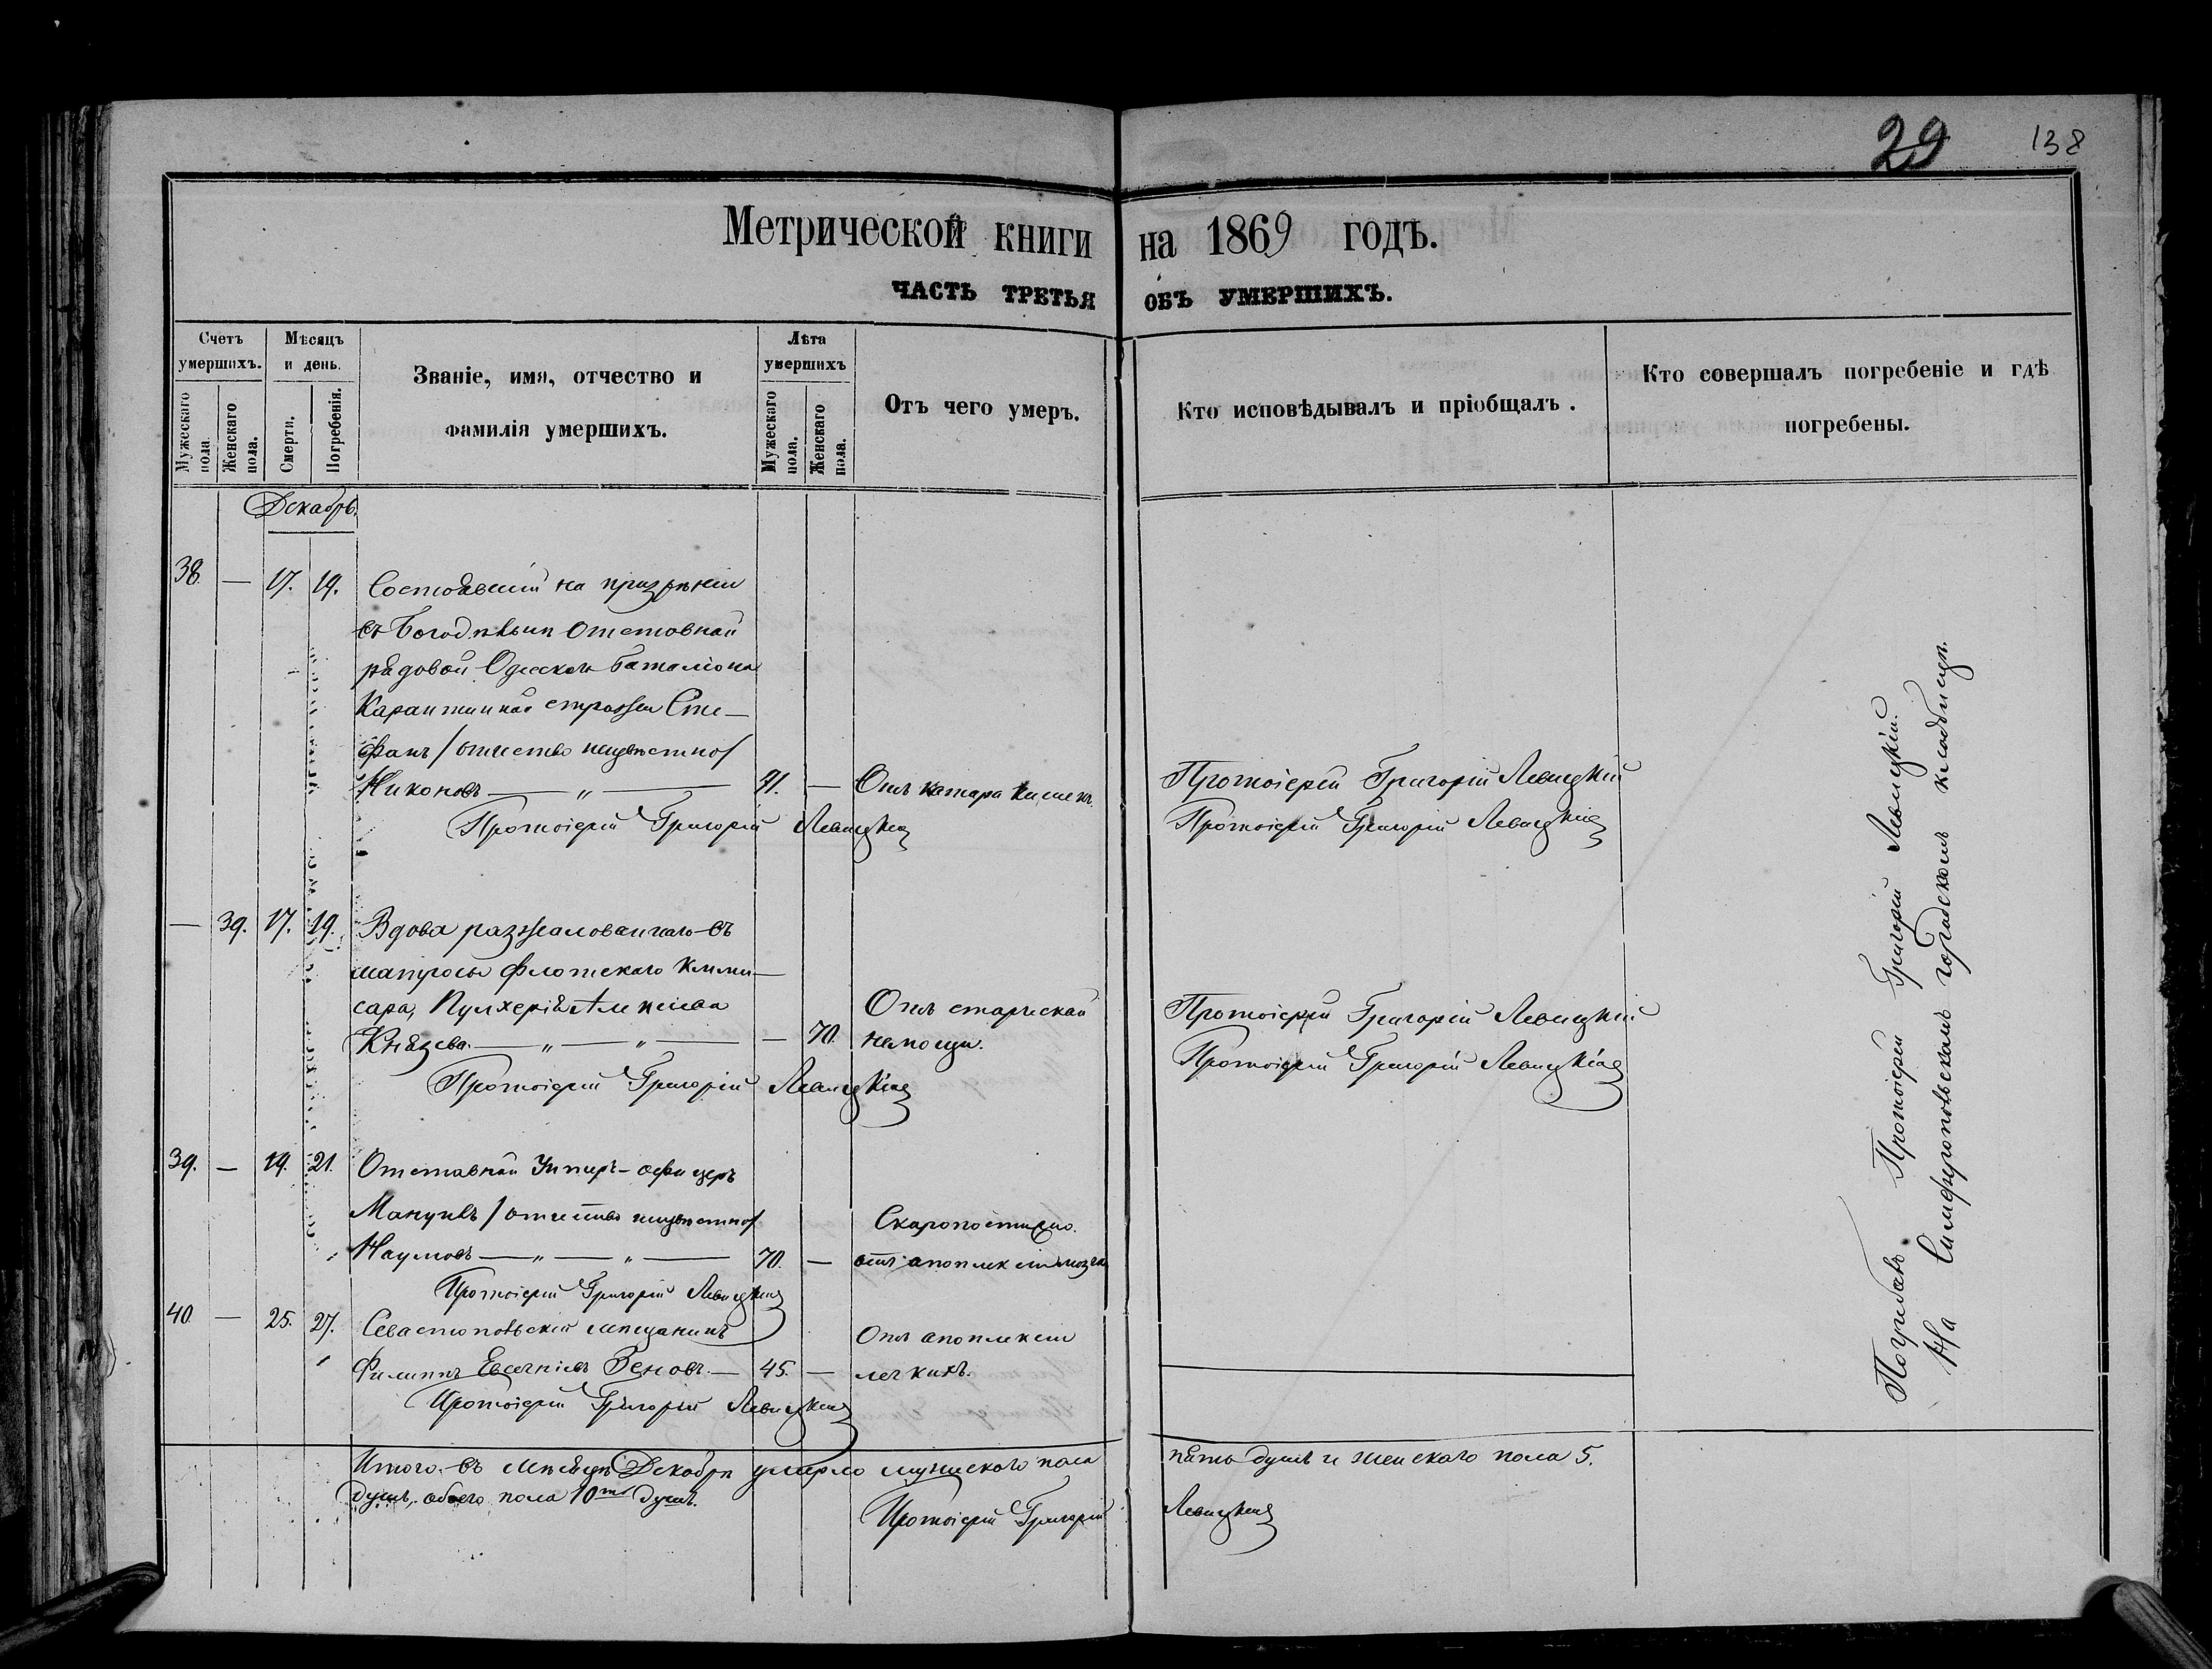 29 138
Метрической книги на 1869 годъ.
ЧАСТЬ ТРЕТЬЯ ОБЪ УМЕРШИХЪ.
Счетъ умершихъ.
Мужескаго пола.
Женскаго пола.
Мѣсяцъ и день.
Смерти.
Погребенія.
Званіе, имя, отчество и
фамилія умершихъ.
Лѣта умершихъ
Мужескаго пола.
Женскаго пола.
Отъ чего умеръ.
Кто исповѣдывалъ и пріобщалъ.
Кто совершалъ погребеніе и гдѣ
погребены.
Декабрь.
38. — 17. 19. Состоявшій на призрѣніи
въ Богодѣльнѣ Отставной
рядовой Одесскаго баталіона
Карантинной стражи Сте-
фанъ /отчество неизвѣстно/
Никоновъ — „ — 91. — Отъ катара кишекъ. Протоіерей Григорій Левицкій
Протоіерей Григорій Левицкій Протоіерей Григорій Левицкій
— 39. 17. 19. Вдова разжалованнаго въ
матросы флотскаго коми-
сара, Пулхерія Алексѣева Отъ старческой Протоіерей Григорій Левицкій
Князева. — „ — „ — — 70. немощи.
Протоіерей Григорій Левицкій Протоіерей Григорій Левицкій
39. — 19. 21. Отставной Унтеръ-офицеръ
/отчество неизвѣстно/ Скоропостижно.
Наумовъ — „ — „ — 70. — отъ апоплексіи мозга
Протоіерей Григорій Левицкій
40. — 25. 27. Севастопольскій мѣщанинъ Отъ апоплексіи
Филиппъ 45. — легкихъ.
Протоіерей Григорій Левицкій
Погребалъ Протоіерей Григорій Левицкій.
На Симферопольскомъ городскомъ кладбищѣ.
Итого въ мѣсяцѣ Декабрѣ умерло мужескаго пола пять душъ и женскаго пола 5.
душъ, обоего пола 10ть душъ.
Протоіерей Григорій Левицкій